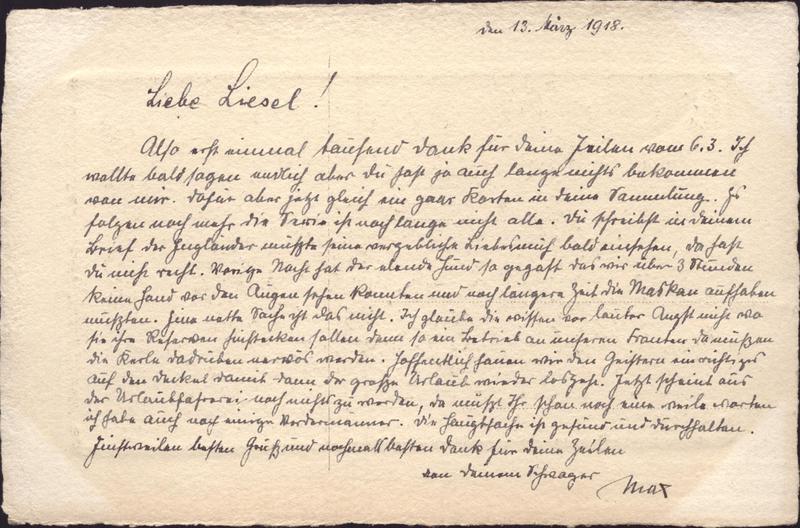 den 13. März 1918.
Liebe Liesel!
Also erst einmal tausend Dank für deine Zeilen vom 6.3. Ich
wollte bald sagen endlich aber du hast ja auch lange nichts bekommen
von mir. dafür aber jetzt gleich ein paar Karten in deine Sammlung. Es
folgen noch mehr die Serie ist noch lange nicht alle. Du schreibst in deinem
Brief der Engländer müßte seine vergebliche bald einsehen, da hast
du nicht recht. Vorige Nacht hat der elende Hund so gegast das wir über 3 Stunden
keine Hand vor den Augen sehen konnten und noch längere Zeit die Masken aufhaben
mußten. Eine nette Sache ist das nicht. Ich glaube die wissen vor lauter Angst nicht wo
sie ihre Reserven hinstecken sollen denn so ein Betrieb an unseren Fronten da müßen
die Kerle dadrüben nervös werden. Hoffentlich hauen wir den Geistern ein richtiges
auf den Deckel damit dann der große Urlaub wieder losgeht. Jetzt scheint aus
der Urlaubsfahrerei noch nichts zu werden, da müßt Ihr schon noch eine weile warten
ich habe auch noch einige Vordermänner. Die Hauptsache ist gesund und durchhalten.
Einstweilen besten Gruß und nochmals besten Dank für deine Zeilen
von deinem Schwager
Max